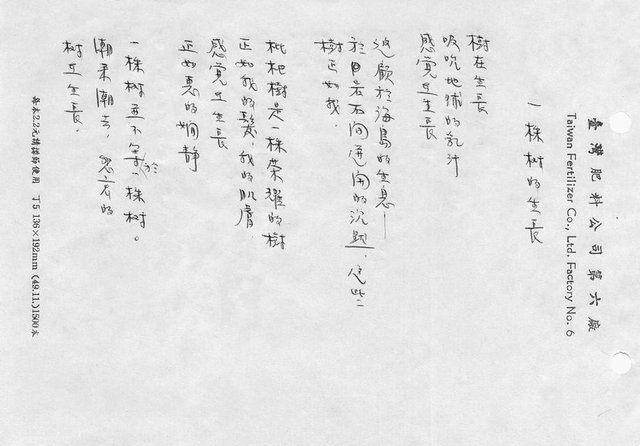 臺灣肥料公司第六廠
Taiwan Fertilizer Co., Ltd. Factory No. 6
一株树的生長
樹在生長
吸吮地球的乳汁
感覚在生長
迴顧於海島的生息—
於日岩石间迸開的沉题,這些
樹正如我
枇杷樹是一株荣耀的樹
正如我的髮,我的肌膚
感覚在生長
正如惠的嫺静
一株树並不等於一株树。
潮來潮去,的
树在生長.
每本2.2元請撙節使用 丁5 136×192mm (49.11.)1500本